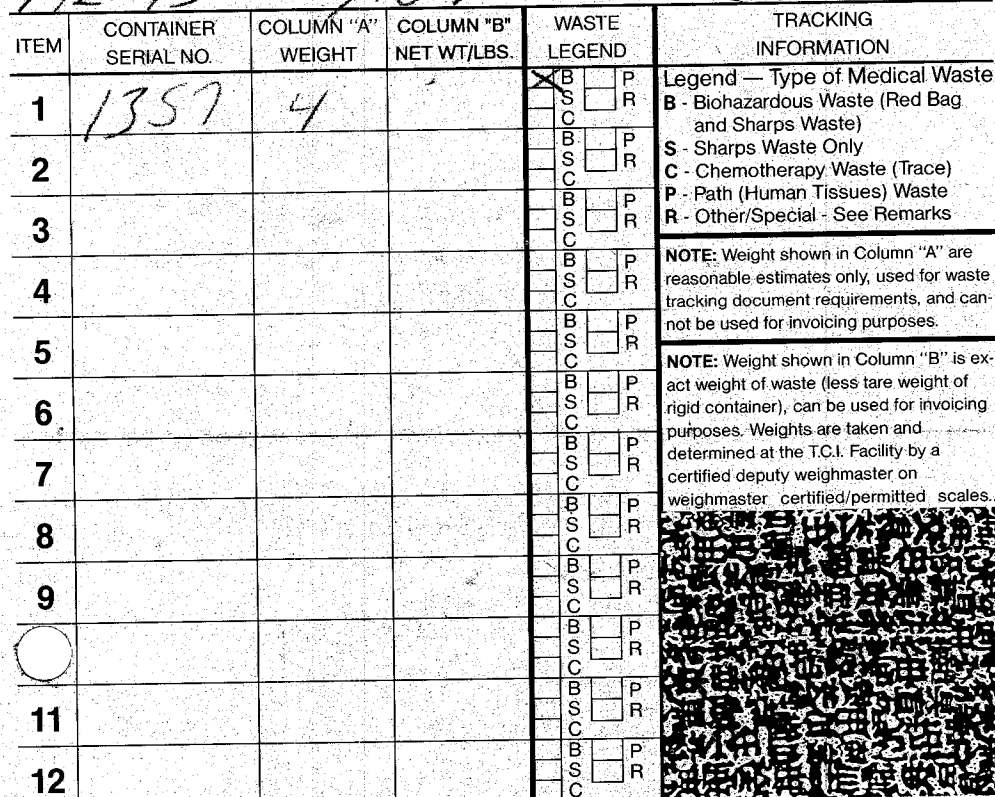 ITEM CONTAINER SERIAL NO. COLUMN "A" WEIGHT COLUMN "B" NET WT/LBS. WASTE LEGEND TRACKING INFORMATION
1 1357 4 X B P
S R
C
2 B P
S R
C
3 B P
S R
C
4 B P
S R
C
5 B P
S R
C
6 B P
S R
C
7 B P
S R
C
8 B P
S R
C
9 B P
S R
C
B P
S R
C
11 B P
S R
C
12 B P
S R
C
Legend — Type of Medical Waste
B - Biohazardous Waste (Red Bag
and Sharps Waste)
S - Sharps Waste Only
C - Chemotherapy Waste (Trace)
P - Path (Human Tissues) Waste
R - Other/Special - See Remarks
NOTE: Weight shown in Column "A" are
reasonable estimates only, used for waste
tracking document requirements, and can-
not be used for invoicing purposes.
NOTE: Weight shown in Column "B" is ex-
act weight of waste (less tare weight of
rigid container), can be used for invoicing
purposes. Weights are taken and
determined at the T.C.I. Facility by a
certified deputy weighmaster on
weighmaster certified/permitted scales.